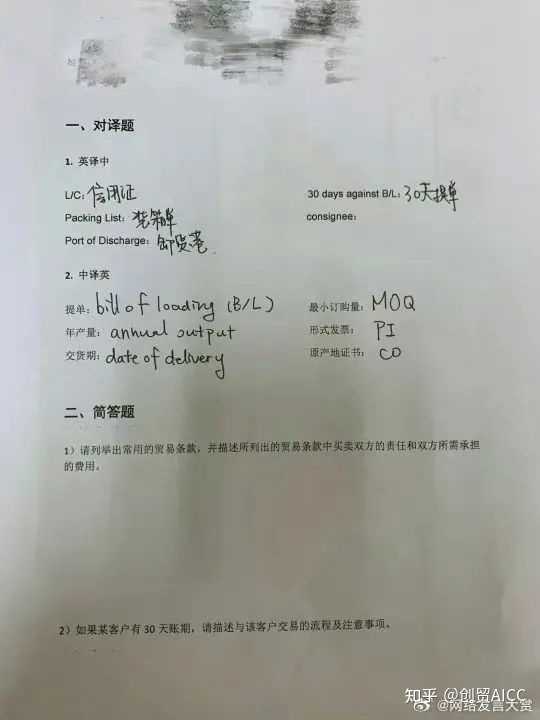 一、对译题
1. 英译中
L/C: 信用证 30 days against B/L: 30天提单
Packing List: 装箱单 consignee:
Port of Discharge: 卸货港
2. 中译英
提单: bill of loading (B/L) 最小订购量: MOQ
年产量: annual output 形式发票: PI
交货期: date of delivery 原产地证书: CO
二、简答题
1）请列举出常用的贸易条款，并描述所列出的贸易条款中买卖双方的责任和双方所需承担
的费用。
2）如果某客户有 30 天账期，请描述与该客户交易的流程及注意事项。
知乎 @创贸AICC
@网络发言大赏